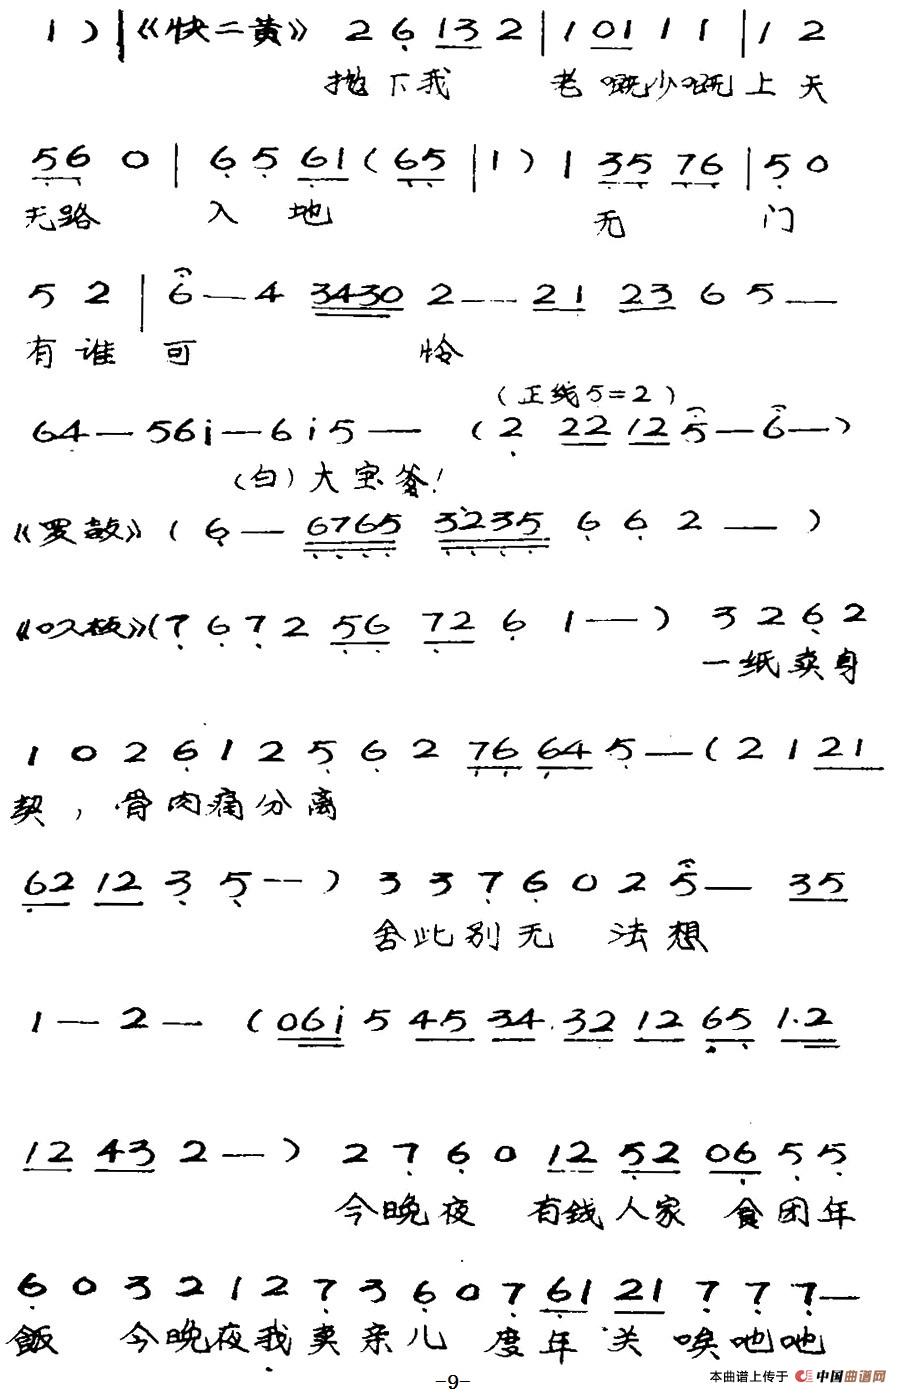 1 ) | 《快二黄》 2 6 13 2 | 1 01 1 1 | 1 2
抛下我 老嘅少嘅上天
56 0 | 6 5 61 ( 65 | 1 ) 1 35 76 | 5 0
无路 入地 无 门
5 2 | 6 — 4 3430 2 -- 21 23 6 5 —
有谁可 怜
64 — 56i — 6 i 5 — ( 2 22 12 5 — 6 — )
(正线5=2)
(白)大宝爹!
《罗鼓》( 6 — 6765 3235 6 6 2 — )
《叹板》( 7 6 7 2 56 72 6 1 — ) 3 2 6 2
一纸卖身
1 0 2 6 1 2 5 6 2 76 64 5 — ( 2 1 21
契, 骨肉痛分离
62 12 3 5 -- ) 3 3 7 6 0 2 5 — 35
舍此别无 法想
1 — 2 — ( 06i 5 45 34 32 12 65 1.2
12 43 2 — ) 2 7 6 0 12 52 06 5 5
今晚夜 有钱人家 食团年
6 0 3 2 1 2 7 3 6 0 7 61 21 7 7 7 —
飯 今晚夜我卖亲儿 度年关 唉吔吔
-9-
本曲谱上传于 中国曲谱网